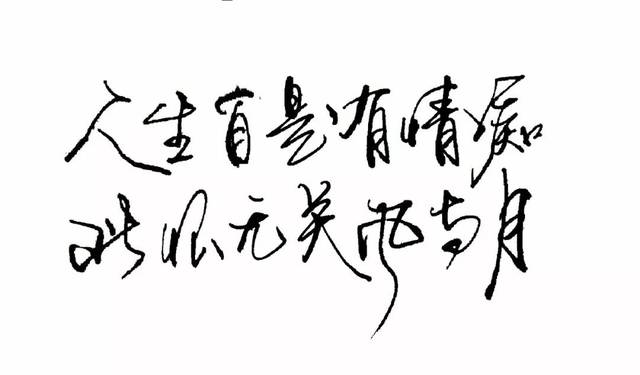 人生自是有情痴
此恨无关风与月